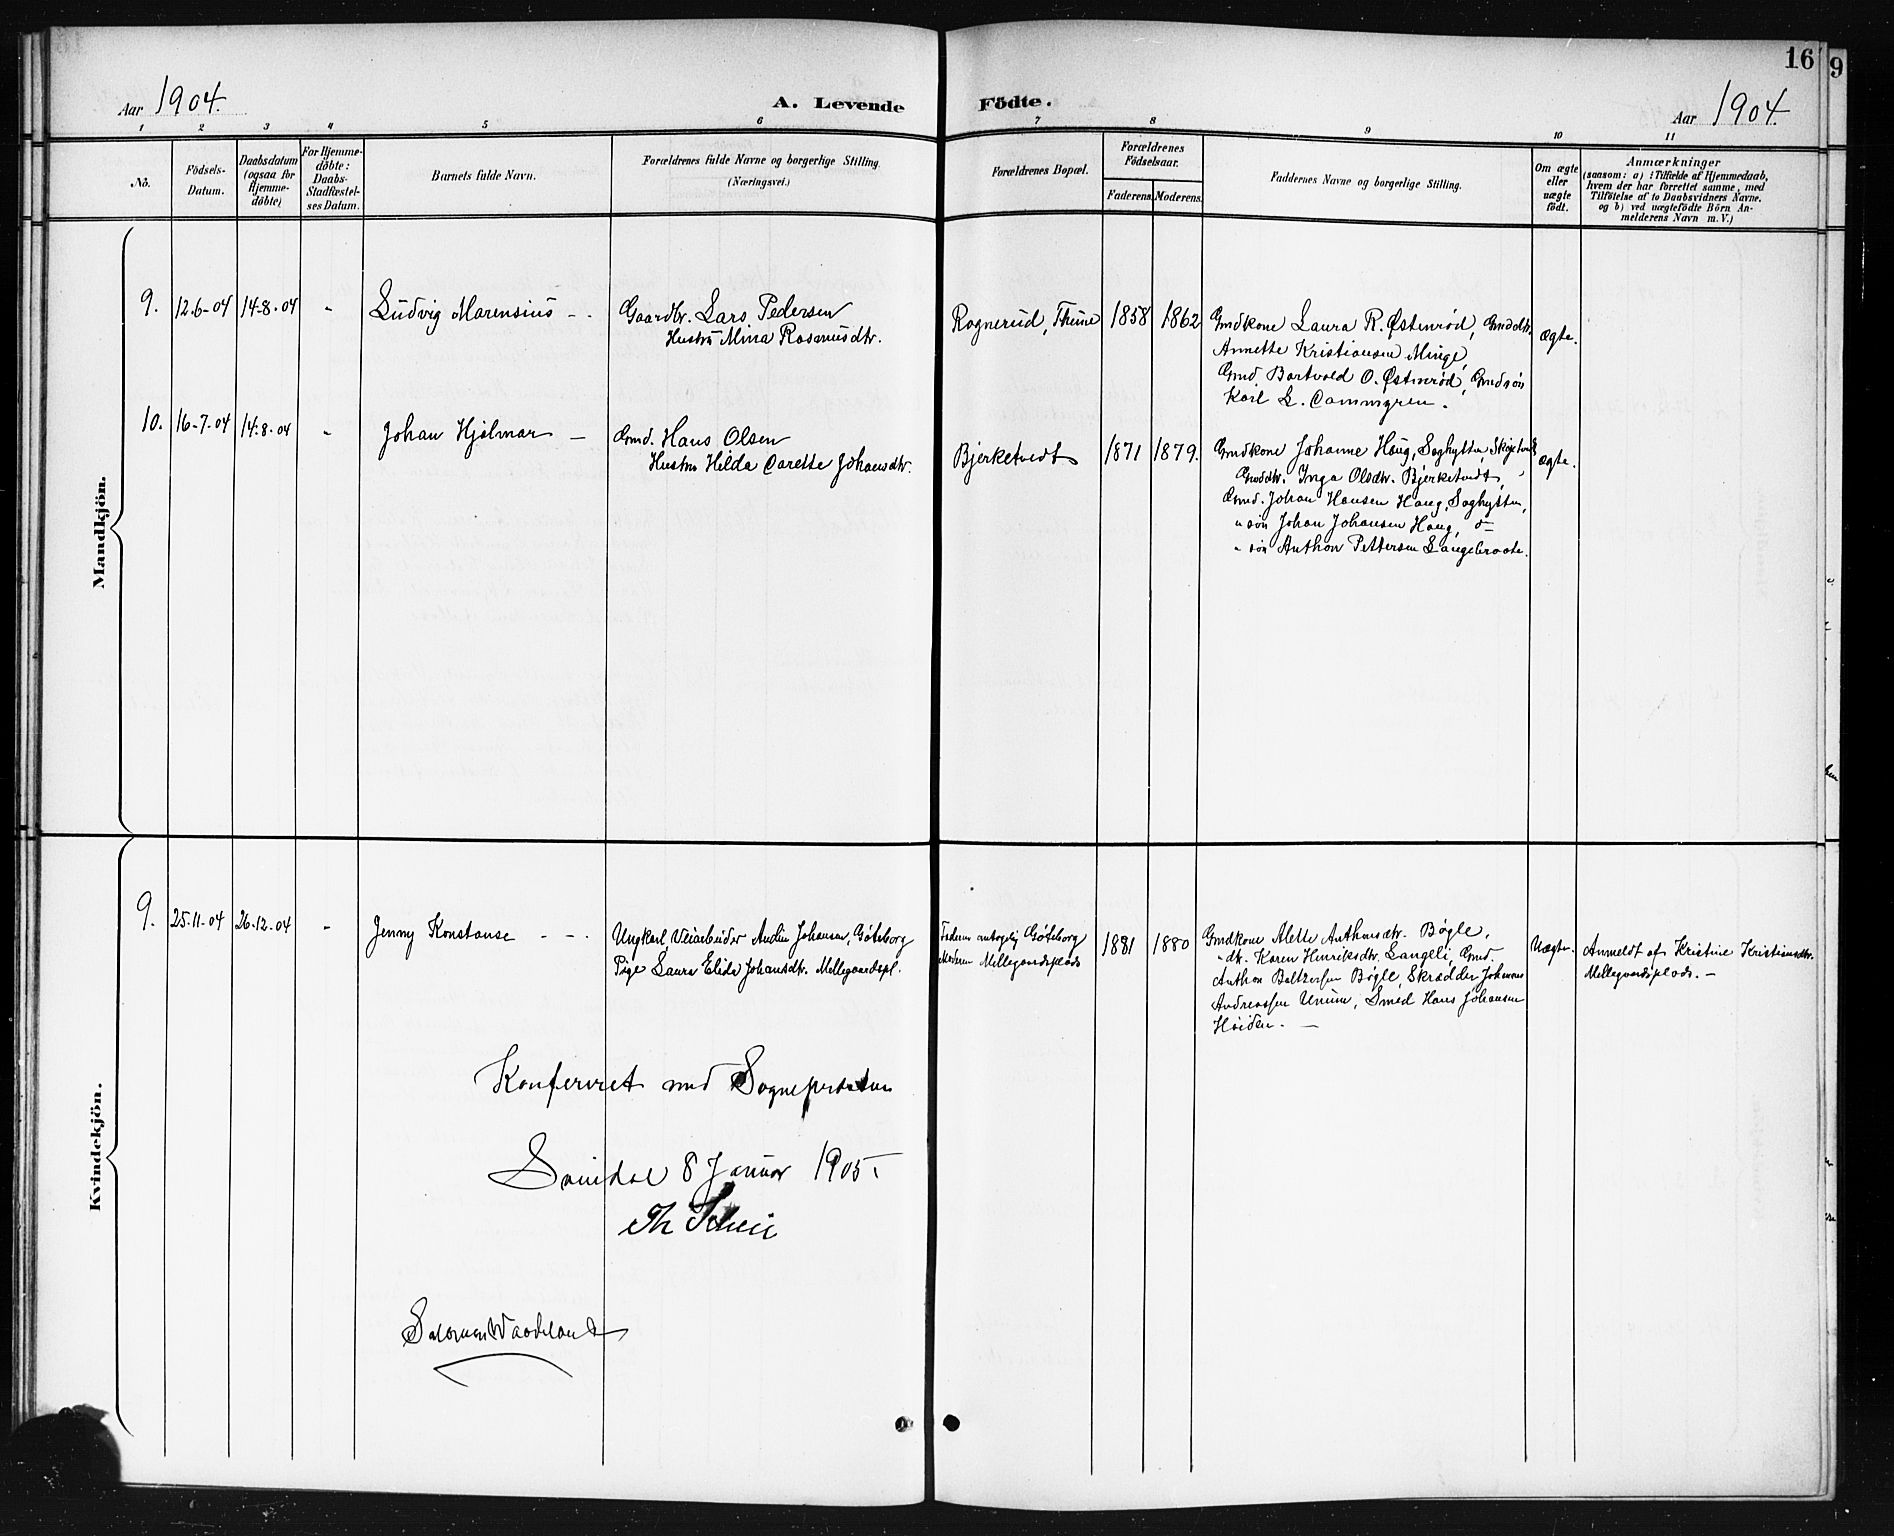 16
9
Aar 1904.
A. Levende Födte.
Aar 1904.
1 2 3 4 5 6 7 8 9 10 11
No.
Födsels-
Datum.
Daabsdatum
(ogsaa for
Hjemme-
döbte)
For Hjemme-
döbte:
Daabs-
Stadfæstel-
ses Datum.
Barnets fulde Navn.
Forældrenes fulde Navne og borgerlige Stilling.
(Næringsvei.)
Forældrenes Bopæl.
Forældrenes
Födselsaar.
Faderens. Moderens.
Faddernes Navne og borgerlige Stilling.
Om ægte
eller
uægte
födt.
Anmærkninger
(saasom: a) i Tilfælde af Hjemmedaab,
hvem der har forrettet samme, med
Tilföielse af to Daabsvidners Navne.
og b) ved uægtefödte Börn An-
melderens Navn m. V.)
Mandkjön.
9. 12-6-04 14-8-04 " Ludvig Marensius - -
Gaardbr. Lars Pedersen
Hustru Mina Rasmusdtr.
Rognerud, Thune 1858 1862
Gmdkone Laura R. Østenrød, Gmddtr.
Annette Kristiansen Minge,
Gmd. Bartvold O. Østenrød, Gmdsøn
Karl L. Cammgren.
ægte.
10. 16-7-04 14-8-04 " Johan Hjalmar -
Gmd. Hans Olsen
Hustru Hilda Carette Johansdtr.
Bjerketvedt 1871 1879.
Gmdkone Johanne Haug, Saghytten,
Gmddtr. Inga Olsdtr. Bjerketvedt,
Gmd. Johan Hansen Haug, Saghytten,
" søn Johan Johansen Haug, do
" søn Anthon Pettersen Langebraate.
ægte.
Kvindekjön.
9. 25-11-04 26-12-04 " Jenny Konstanse - - -
Ungkarl, Veiarbeider Andin Johansen, Göteborg
Pige Laura Elida Johansdtr. Mellegaardspl.
Faderen antagelig Göteborg
Moderen Mellegaardsplads
1881 1880
Gmdkone Alette Anthonsdtr. Bøgle,
" dtr. Karen Henriksdtr. Langeli, Gmd.
Anthon Baltzersen Bøgle, Skrædder Johannes
Andreassen Unum, Smed Hans Johansen
Heiden. -
Uægte.
Anmeldt af Kristine Kristiansdtr.
Mellegaardsplads. -
Konfereret med Sognepræsten
8 Januar 1905.
Th